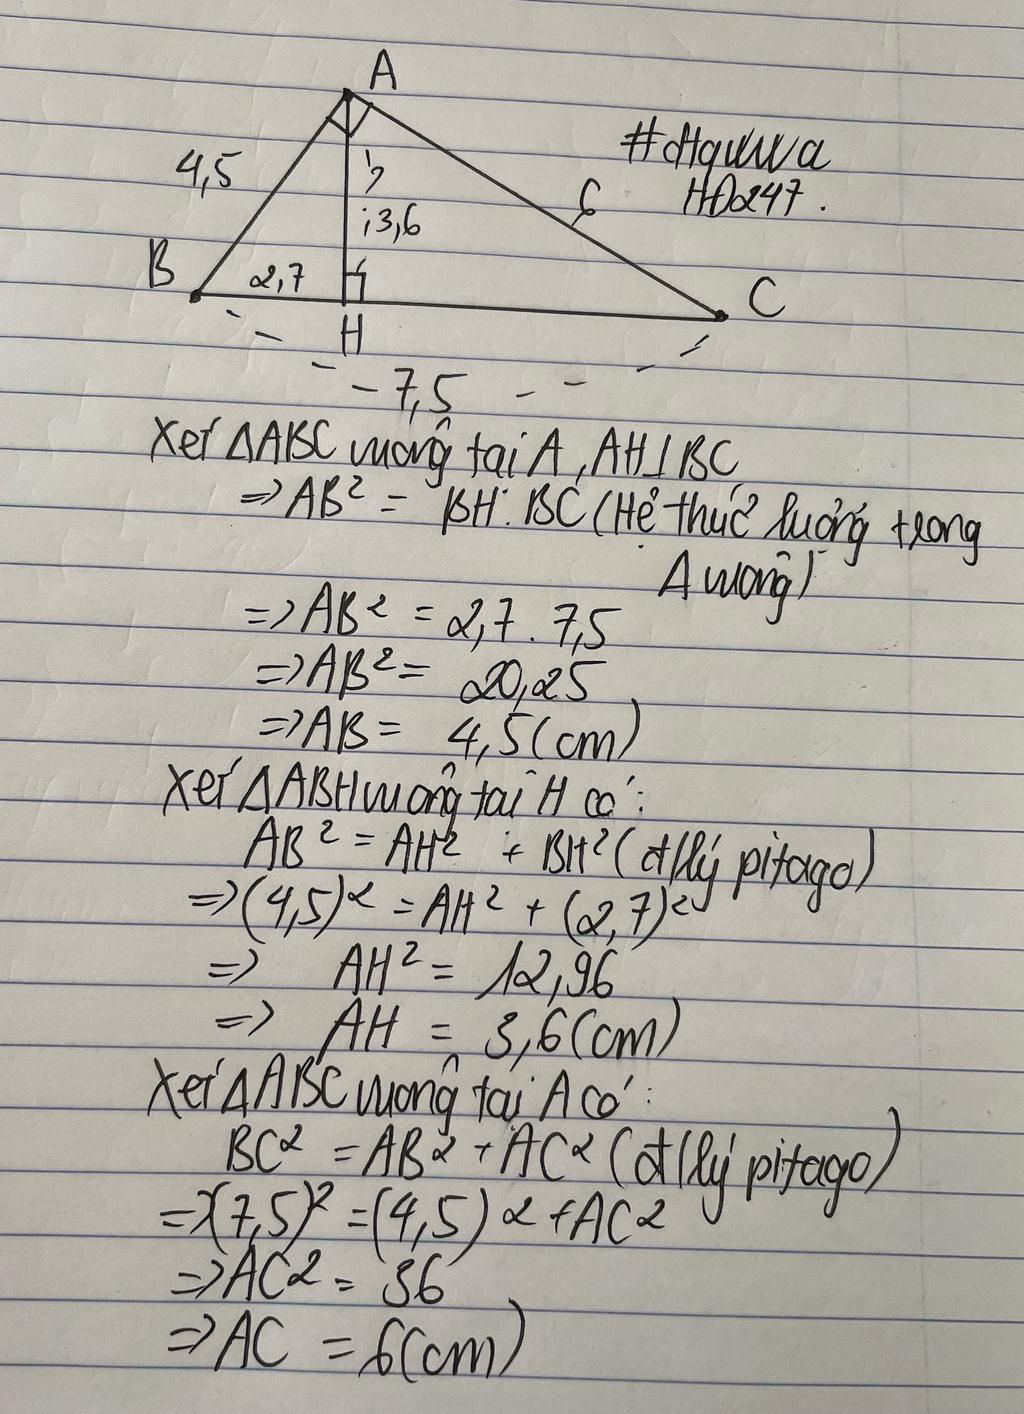 A
4,5
?
3,6
6
#dHquwa
HĐ247.
B
2,7
H
C
7,5
Xét ΔABC vuông tại A, AH⊥BC
=> AB² = BH.BC (Hệ thức lượng trong
Δ vuông)
=> AB² = 2,7 . 7,5
=> AB² = 20,25
=> AB = 4,5 (cm)
Xét ΔABH vuông tại H có:
AB² = AH² + BH² (đ/lý pitago)
=> (4,5)² = AH² + (2,7)²
=> AH² = 12,96
=> AH = 3,6 (cm)
Xét ΔABC vuông tại A có:
BC² = AB² + AC² (đ/lý pitago)
=> (7,5)² = (4,5)² + AC²
=> AC² = 36
=> AC = 6 (cm)